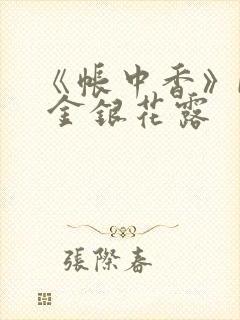 《帳中香》
金銀花露
張際春